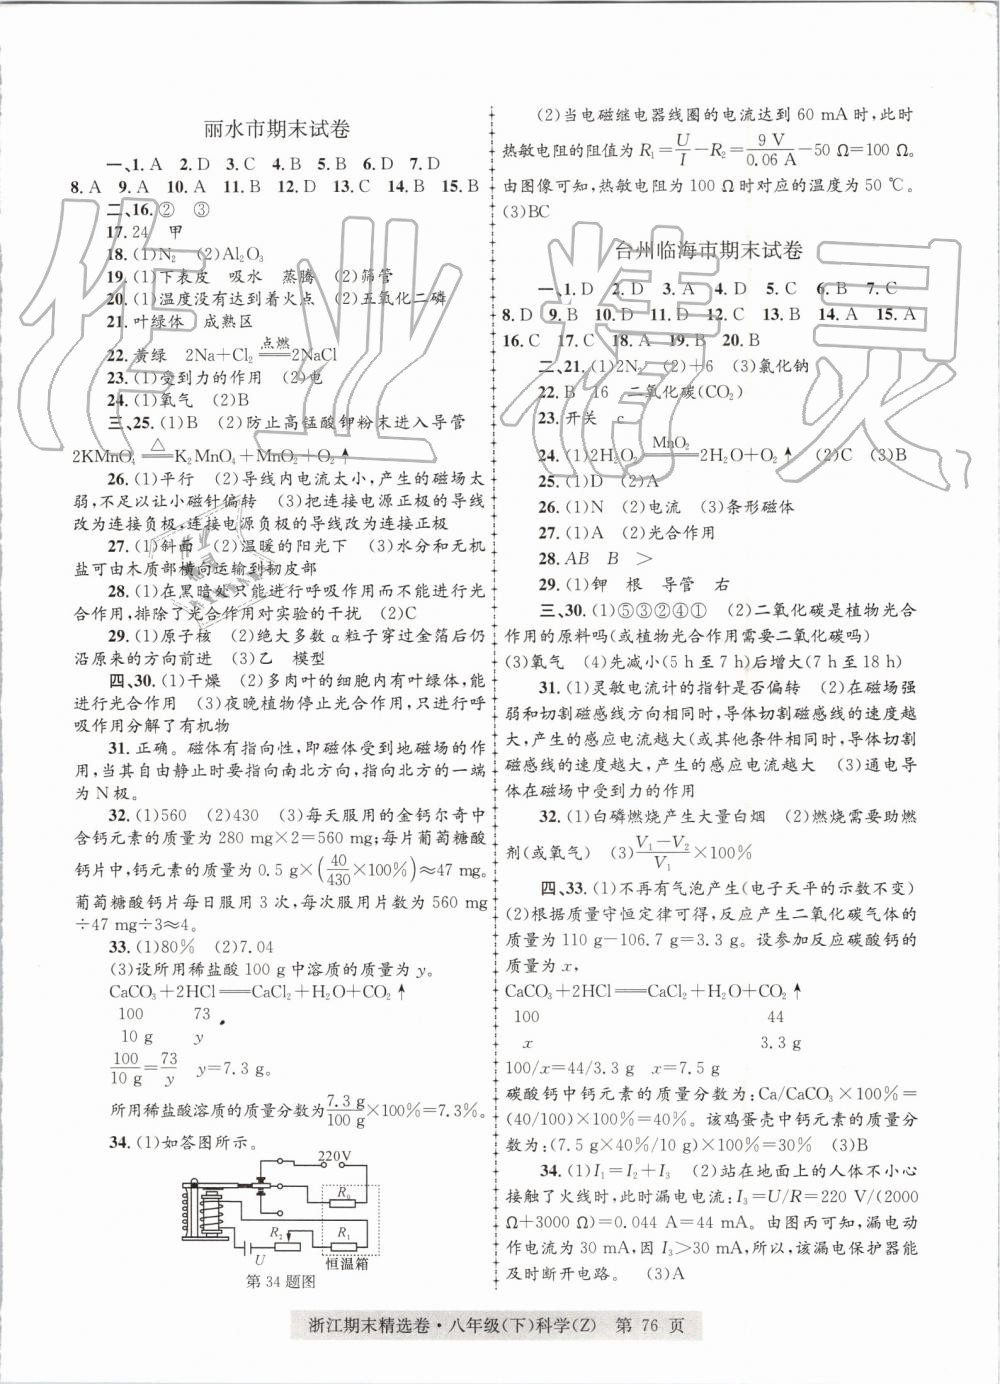 丽水市期末试卷
一、1. A　2. D　3. C　4. B　5. B　6. D　7. D
8. A　9. A　10. A　11. B　12. D　13. C　14. B　15. B
二、16. ②　③
17. 24　甲
18. (1)N₂　(2)Al₂O₃
19. (1)下表皮　吸水　蒸腾　(2)筛管
20. (1)温度没有达到着火点　(2)五氧化二磷
21. 叶绿体　成熟区
22. 黄绿　2Na+Cl₂ 点燃══ 2NaCl
23. (1)受到力的作用　(2)电
24. (1)氧气　(2)B
三、25. (1)B　(2)防止高锰酸钾粉末进入导管
2KMnO₄ △══ K₂MnO₄+MnO₂+O₂↑
26. (1)平行　(2)导线内电流太小,产生的磁场太
弱,不足以让小磁针偏转　(3)把连接电源正极的导线
改为连接负极,连接电源负极的导线改为连接正极
27. (1)斜面　(2)温暖的阳光下　(3)水分和无机
盐可由木质部横向运输到韧皮部
28. (1)在黑暗处只能进行呼吸作用而不能进行光
合作用,排除了光合作用对实验的干扰　(2)C
29. (1)原子核　(2)绝大多数α粒子穿过金箔后仍
沿原来的方向前进　(3)乙　模型
四、30. (1)干燥　(2)多肉叶的细胞内有叶绿体,能
进行光合作用　(3)夜晚植物停止光合作用,只进行呼
吸作用分解了有机物
31. 正确。磁体有指向性,即磁体受到地磁场的作
用,当其自由静止时要指向南北方向,指向北方的一端
为N极。
32. (1)560　(2)430　(3)每天服用的金钙尔奇中
含钙元素的质量为 280 mg×2=560 mg;每片葡萄糖酸
钙片中,钙元素的质量为 0.5 g×(40/430×100%)≈47 mg。
葡萄糖酸钙片每日服用3次,每次服用片数为 560 mg
÷47 mg÷3≈4。
33. (1)80%　(2)7.04
(3)设所用稀盐酸 100 g 中溶质的质量为 y。
CaCO₃+2HCl══CaCl₂+H₂O+CO₂↑
100　73
10 g　y
100/10 g=73/y　y=7.3 g。
所用稀盐酸溶质的质量分数为 7.3 g/100 g×100%=7.3%。
34. (1)如答图所示。
220V
R₀
R₂　R₁
U　恒温箱
第34题图
(2)当电磁继电器线圈的电流达到 60 mA时,此时
热敏电阻的阻值为 R₁=U/I−R₂=9 V/0.06 A−50 Ω=100 Ω。
由图像可知,热敏电阻为 100 Ω时对应的温度为 50 ℃。
(3)BC
台州临海市期末试卷
一、1. D　2. D　3. A　4. D　5. C　6. B　7. C
8. D　9. B　10. D　11. D　12. C　13. B　14. A　15. A
16. C　17. C　18. A　19. B　20. B
二、21. (1)2N₂　(2)+6　(3)氯化钠
22. B　16　二氧化碳(CO₂)
23. 开关　c
24. (1)2H₂O₂ MnO₂══ 2H₂O+O₂↑　(2)C　(3)B
25. (1)D　(2)A
26. (1)N　(2)电流　(3)条形磁体
27. (1)A　(2)光合作用
28. AB　B　>
29. (1)钾　根　导管　右
三、30. (1)⑤③②④①　(2)二氧化碳是植物光合
作用的原料吗(或植物光合作用需要二氧化碳吗)
(3)氧气　(4)先减小(5 h至7 h)后增大(7至18 h)
31. (1)灵敏电流计的指针是否偏转　(2)在磁场强
弱和切割磁感线方向相同时,导体切割磁感线的速度越
大,产生的感应电流越大(或其他条件相同时,导体切割
磁感线的速度越大,产生的感应电流越大　(3)通电导
体在磁场中受到力的作用
32. (1)白磷燃烧产生大量白烟　(2)燃烧需要助燃
剂(或氧气)　(3)V₁−V₂/V₁×100%
四、33. (1)不再有气泡产生(电子天平的示数不变)
(2)根据质量守恒定律可得,反应产生二氧化碳气体的
质量为 110 g−106.7 g=3.3 g。设参加反应碳酸钙的
质量为 x,
CaCO₃+2HCl══CaCl₂+H₂O+CO₂↑
100　44
x　3.3 g
100/x=44/3.3 g　x=7.5 g
碳酸钙中钙元素的质量分数为:Ca/CaCO₃×100%=
(40/100)×100%=40%。该鸡蛋壳中钙元素的质量分
数为:(7.5 g×40%/10 g)×100%=30%　(3)B
34. (1)I₁=I₂+I₃　(2)站在地面上的人体不小心
接触了火线时,此时漏电电流:I₃=U/R=220 V/(2000
Ω+3000 Ω)=0.044 A=44 mA。由图丙可知,漏电动
作电流为 30 mA,因 I₃>30 mA,所以,该漏电保护器能
及时断开电路。　(3)A
浙江期末精选卷·八年级(下)科学(Z)　第 76 页
作业精灵